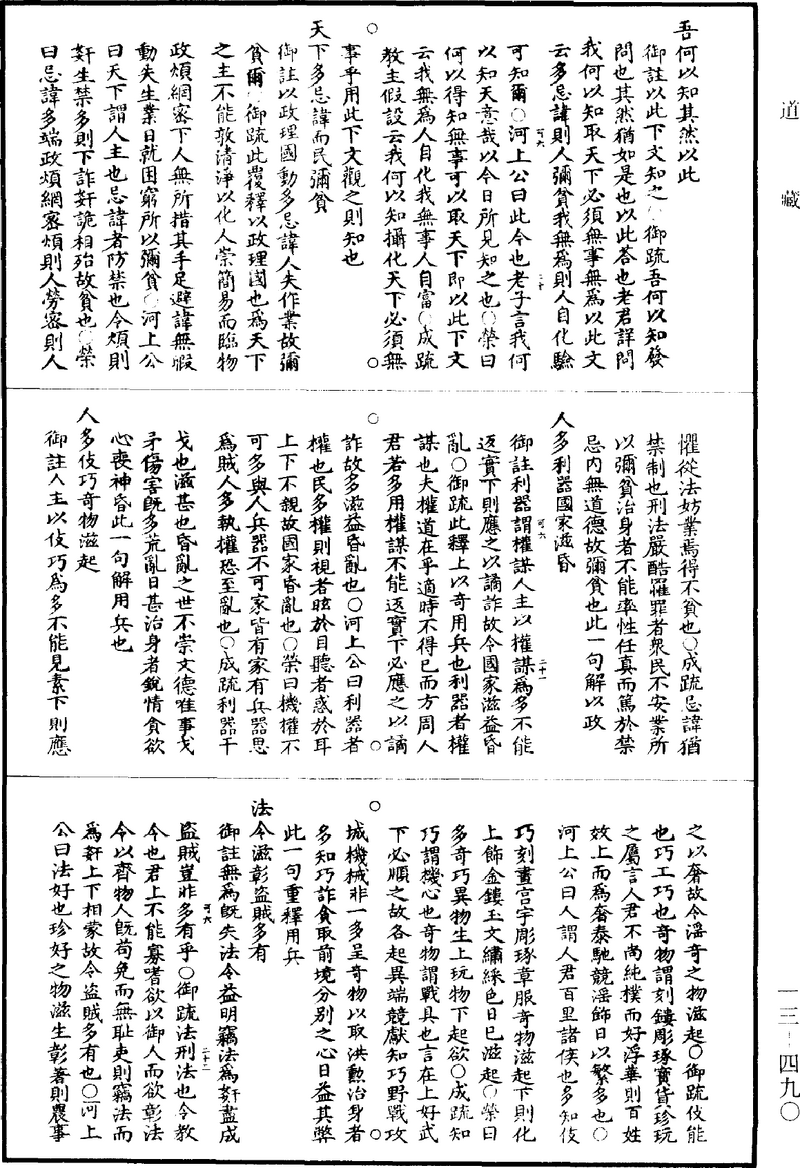 道藏
吾何以知其然以此
御註以此下文知之○御疏吾何以知發
問也其然猶如是也以此答也老君詳問
我何以知取天下必須無事無為以此文
云多忌諱則人彌貧我無為則人自化驗
可知爾○河上公曰此今也老子言我何
以知天意哉以今日所見知之也○榮曰
何以得知無事可以取天下即以此下文
云我無為人自化我無事人自富○成疏
教主假設云我何以知攝化天下必須無
事乎用此下文觀之則知也
天下多忌諱而民彌貧
御註以政理國動多忌諱人失作業故彌
貧爾○御疏此覆釋以政理國也為天下
之主不能敦清淨以化人崇簡易而臨物
政煩網密下人無所措其手足避諱無暇
動失生業日就困窮所以彌貧○河上公
曰天下謂人主也忌諱者防禁也令煩則
姧生禁多則下詐姧詭相殆故貧也○榮
曰忌諱多端政煩網密煩則人勞密則人
懼從法妨業焉得不貧也○成疏忌諱猶
禁制也刑法嚴酷罹罪者衆民不安業所
以彌貧治身者不能率性任真而篤於禁
忌內無道德故彌貧也此一句解以政
人多利器國家滋昏
御註利器謂權謀人主以權謀為多不能
返實下則應之以譎詐故令國家滋益昏
亂○御疏此釋上以奇用兵也利器者權
謀也夫權道在乎適時不得已而方周人
君若多用權謀不能返實下必應之以譎
詐故多滋益昏亂也○河上公曰利器者
權也民多權則視者眩於目聽者惑於耳
上下不親故國家昏亂也○榮曰機權不
可多與人兵器不可家皆有家有兵器思
為賊人多執權恐至亂也○成疏利器干
戈也滋甚也昏亂之世不崇文德唯事戈
矛傷害既多荒亂日甚治身者銳情貪欲
心喪神昏此一句解用兵也
人多伎巧奇物滋起
御註人主以伎巧為多不能見素下則應
之以奢故令淫奇之物滋起○御疏伎能
也巧工巧也奇物謂刻鏤彫琢寶貨珍玩
之屬言人君不尚純樸而好浮華則百姓
效上而為奢泰馳競淫飾日以繁多也○
河上公曰人謂人君百里諸侯也多知伎
巧刻畫宮宇彫琢章服奇物滋起下則化
上飾金鏤玉文繡綵色日已滋起○榮曰
多奇巧異物生上玩物下起欲○成疏知
巧謂機心也奇物謂戰具也言在上好武
下必順之故各起異端競獻知巧野戰攻
城機械非一多呈奇物以取洪勳治身者
多知巧詐貪取前境分別之心日益其弊
此一句重釋用兵
法令滋彰盜賊多有
御註無為既失法令益明竊法為姧盡成
盜賊豈非多有乎○御疏法刑法也令教
令也君上不能寡嗜欲以御人而欲彰法
令以齊物人既苟免而無恥吏則竊法而
為姧上下相蒙故令盜賊多有也○河上
公曰法好也珍好之物滋生彰著則農事
可六
二十
可六
二十一
可六
二十二
一三－四九〇